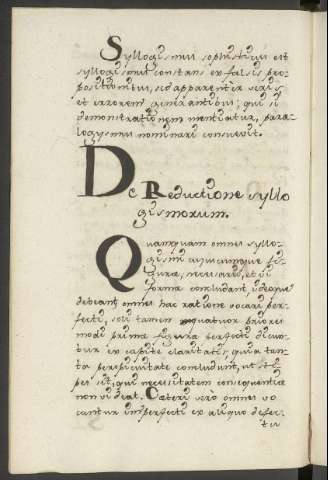 Syllogismus sophisticus est
syllogismus constans ex falsis pro-
positionibus, sed apparenter veris
et errorem generantibus, qui si
demonstrationem mentiatur, para-
logysmus nominari consuevit.
De Reductione syllo
gismorum.
Quamquam omnes syllo-
gismi cujuscumque fi-
guræ, necessario, et vi
formæ concludant, ideoque
debeant omnes hac ratione vocari per-
fecti, soli tamen quatuor priores
modi primæ figuræ perfecti dicun-
tur ex capite claritatis, quia tan-
ta perspicuitate concludunt, ut
per sit, qui necessitatem consequentiæ
non videat. Cæteri vero omnes vo
cantur imperfecti ex aliquo defec-
tu